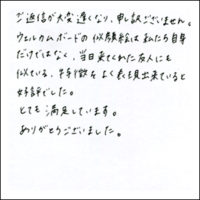 ご返信が大変遅くなり、申し訳ございません。
ウェルカムボードの似顔絵は私たち自身
だけではなく、当日来てくれた友人にも
似ている、特徴をよく表現出来ていると
好評でした。
とても満足しています。
ありがとうございました。